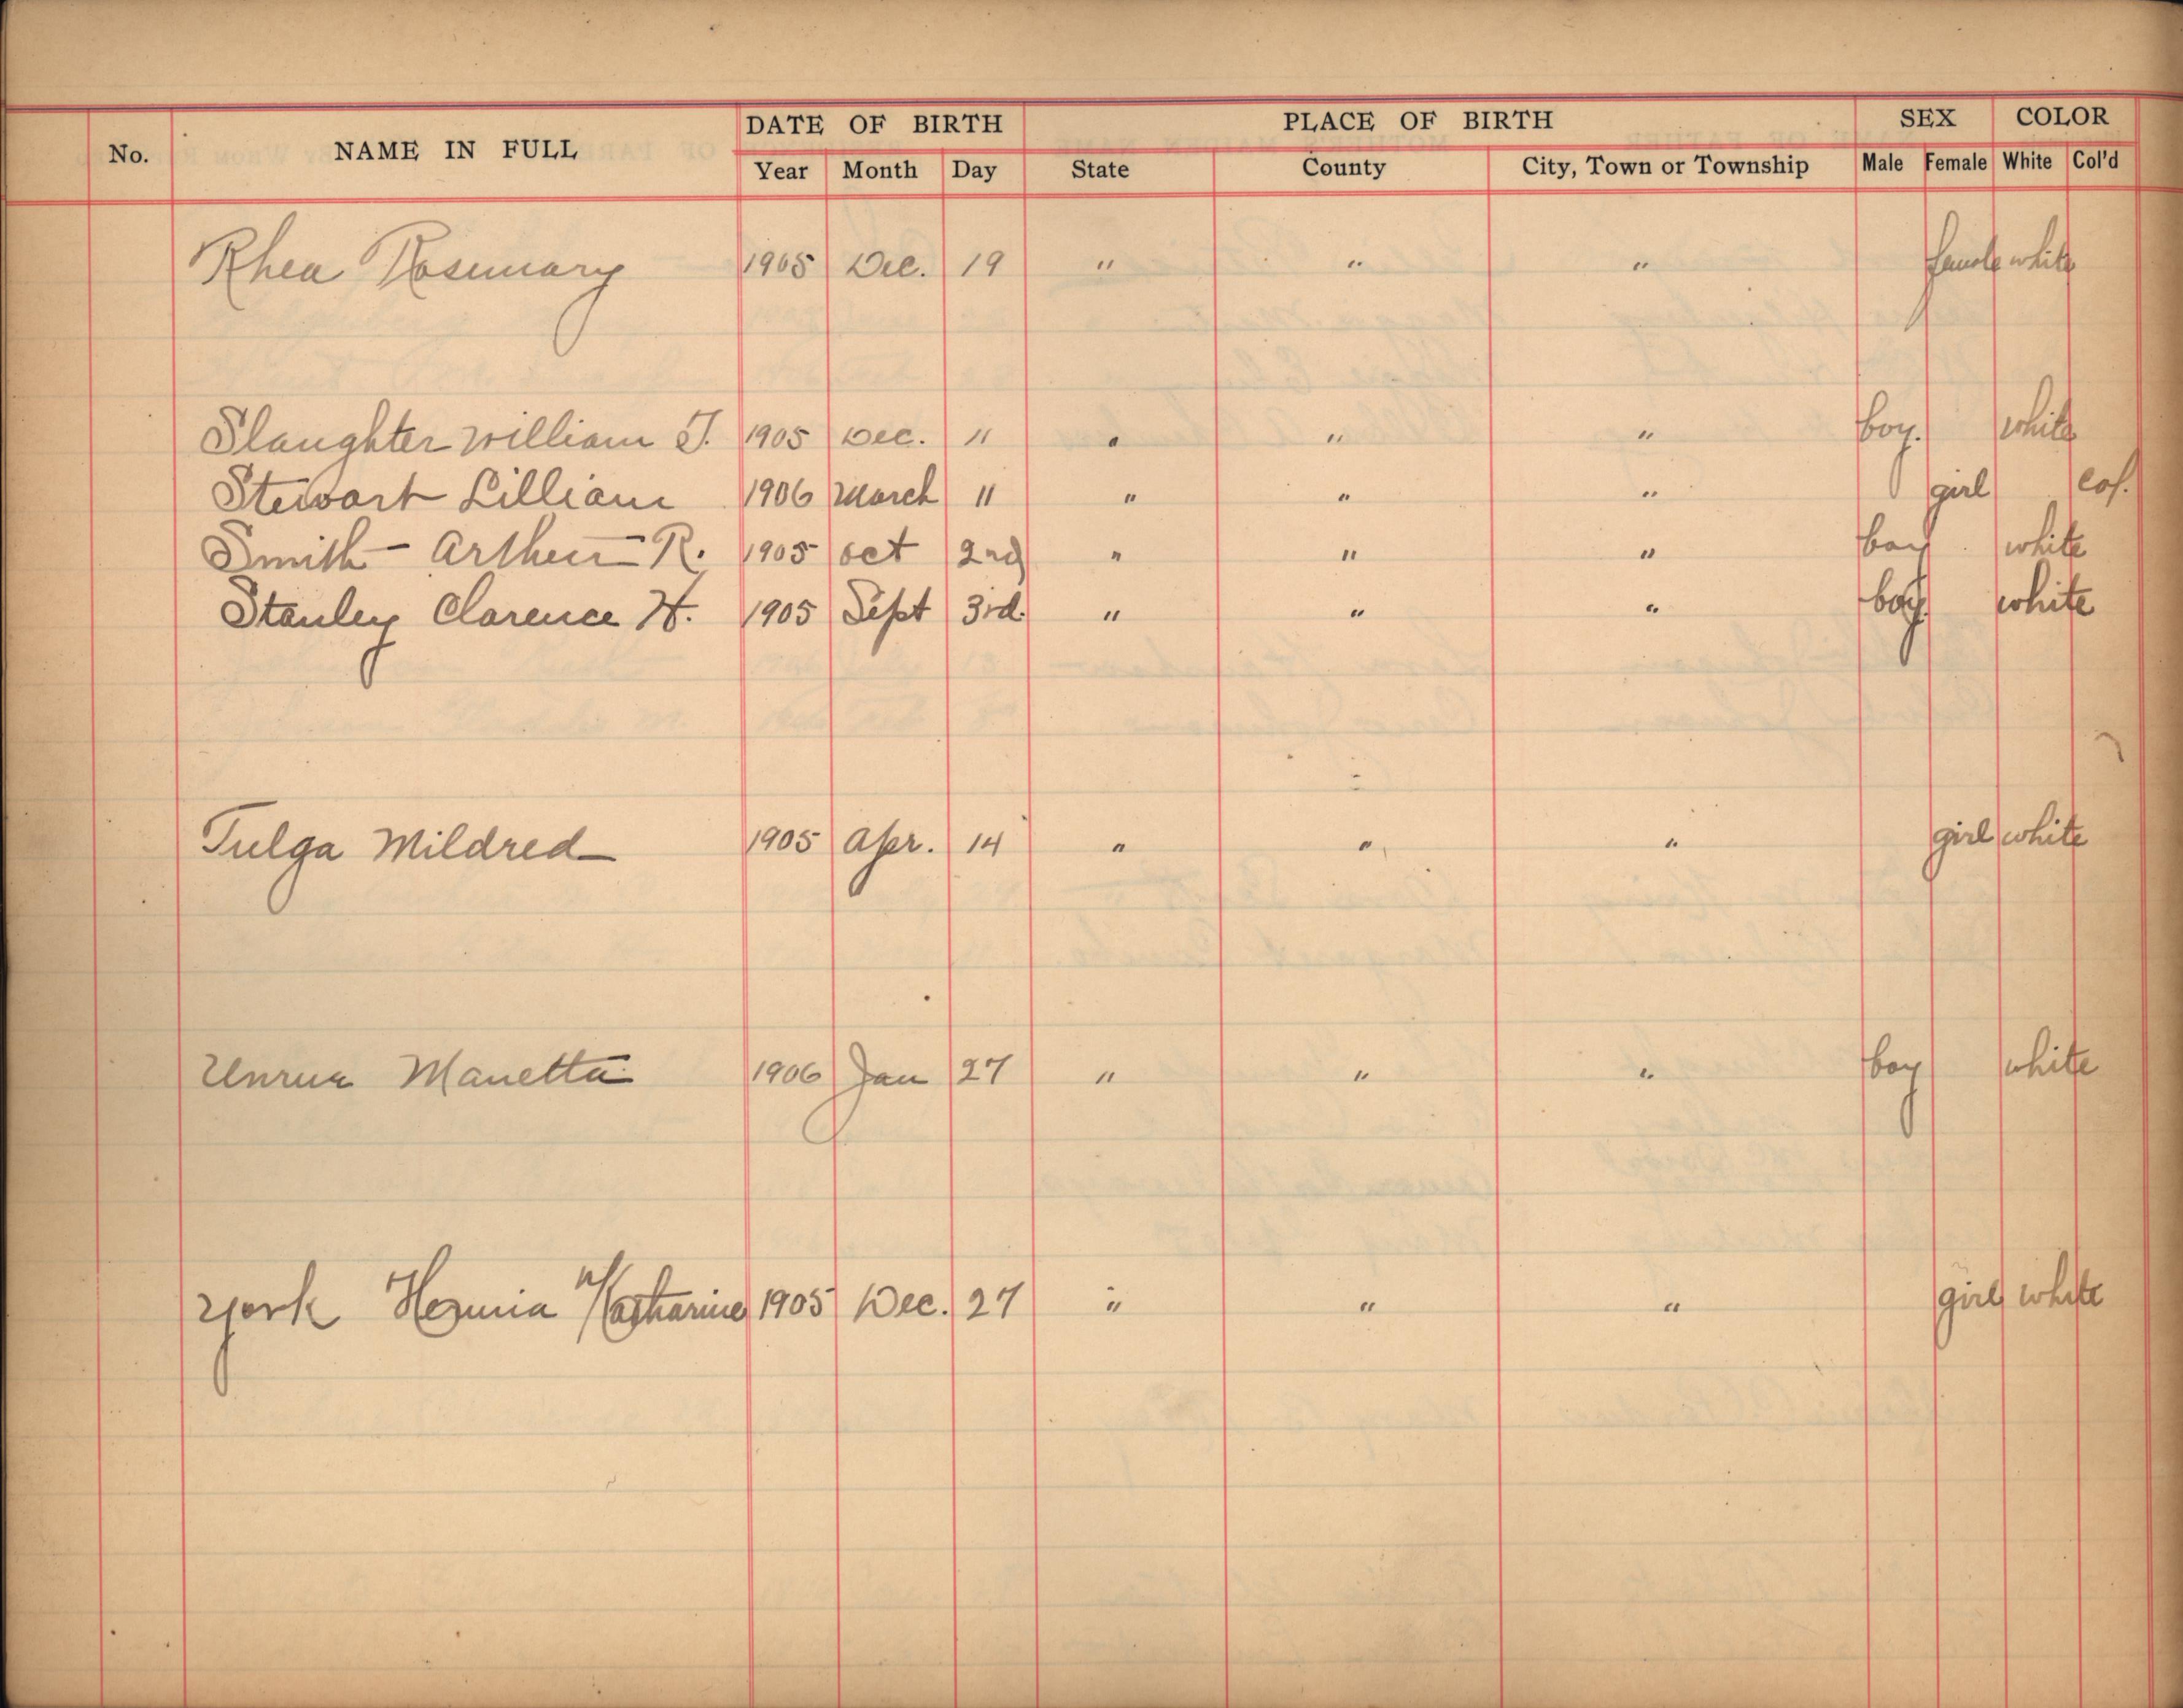 DATE OF BIRTH PLACE OF BIRTH SEX COLOR
No. NAME IN FULL Year Month Day State County City, Town or Township Male Female White Col'd
Rhea Rosemary 1905 Dec. 19 " " " female white
Slaughter William T. 1905 Dec. 11 " " " boy. white
Stewart Lillian 1906 March 11 " " " girl Col.
Smith - Arthur R. 1905 Oct 2nd " " " boy white
Stanley Clarence H. 1905 Sept 3rd. " " " boy white
Tulga Mildred 1905 Apr. 14 " " " girl white
Unrue Manetta 1906 Jan 27 " " " boy white
York Hermia Katharine 1905 Dec. 27 " " " girl white